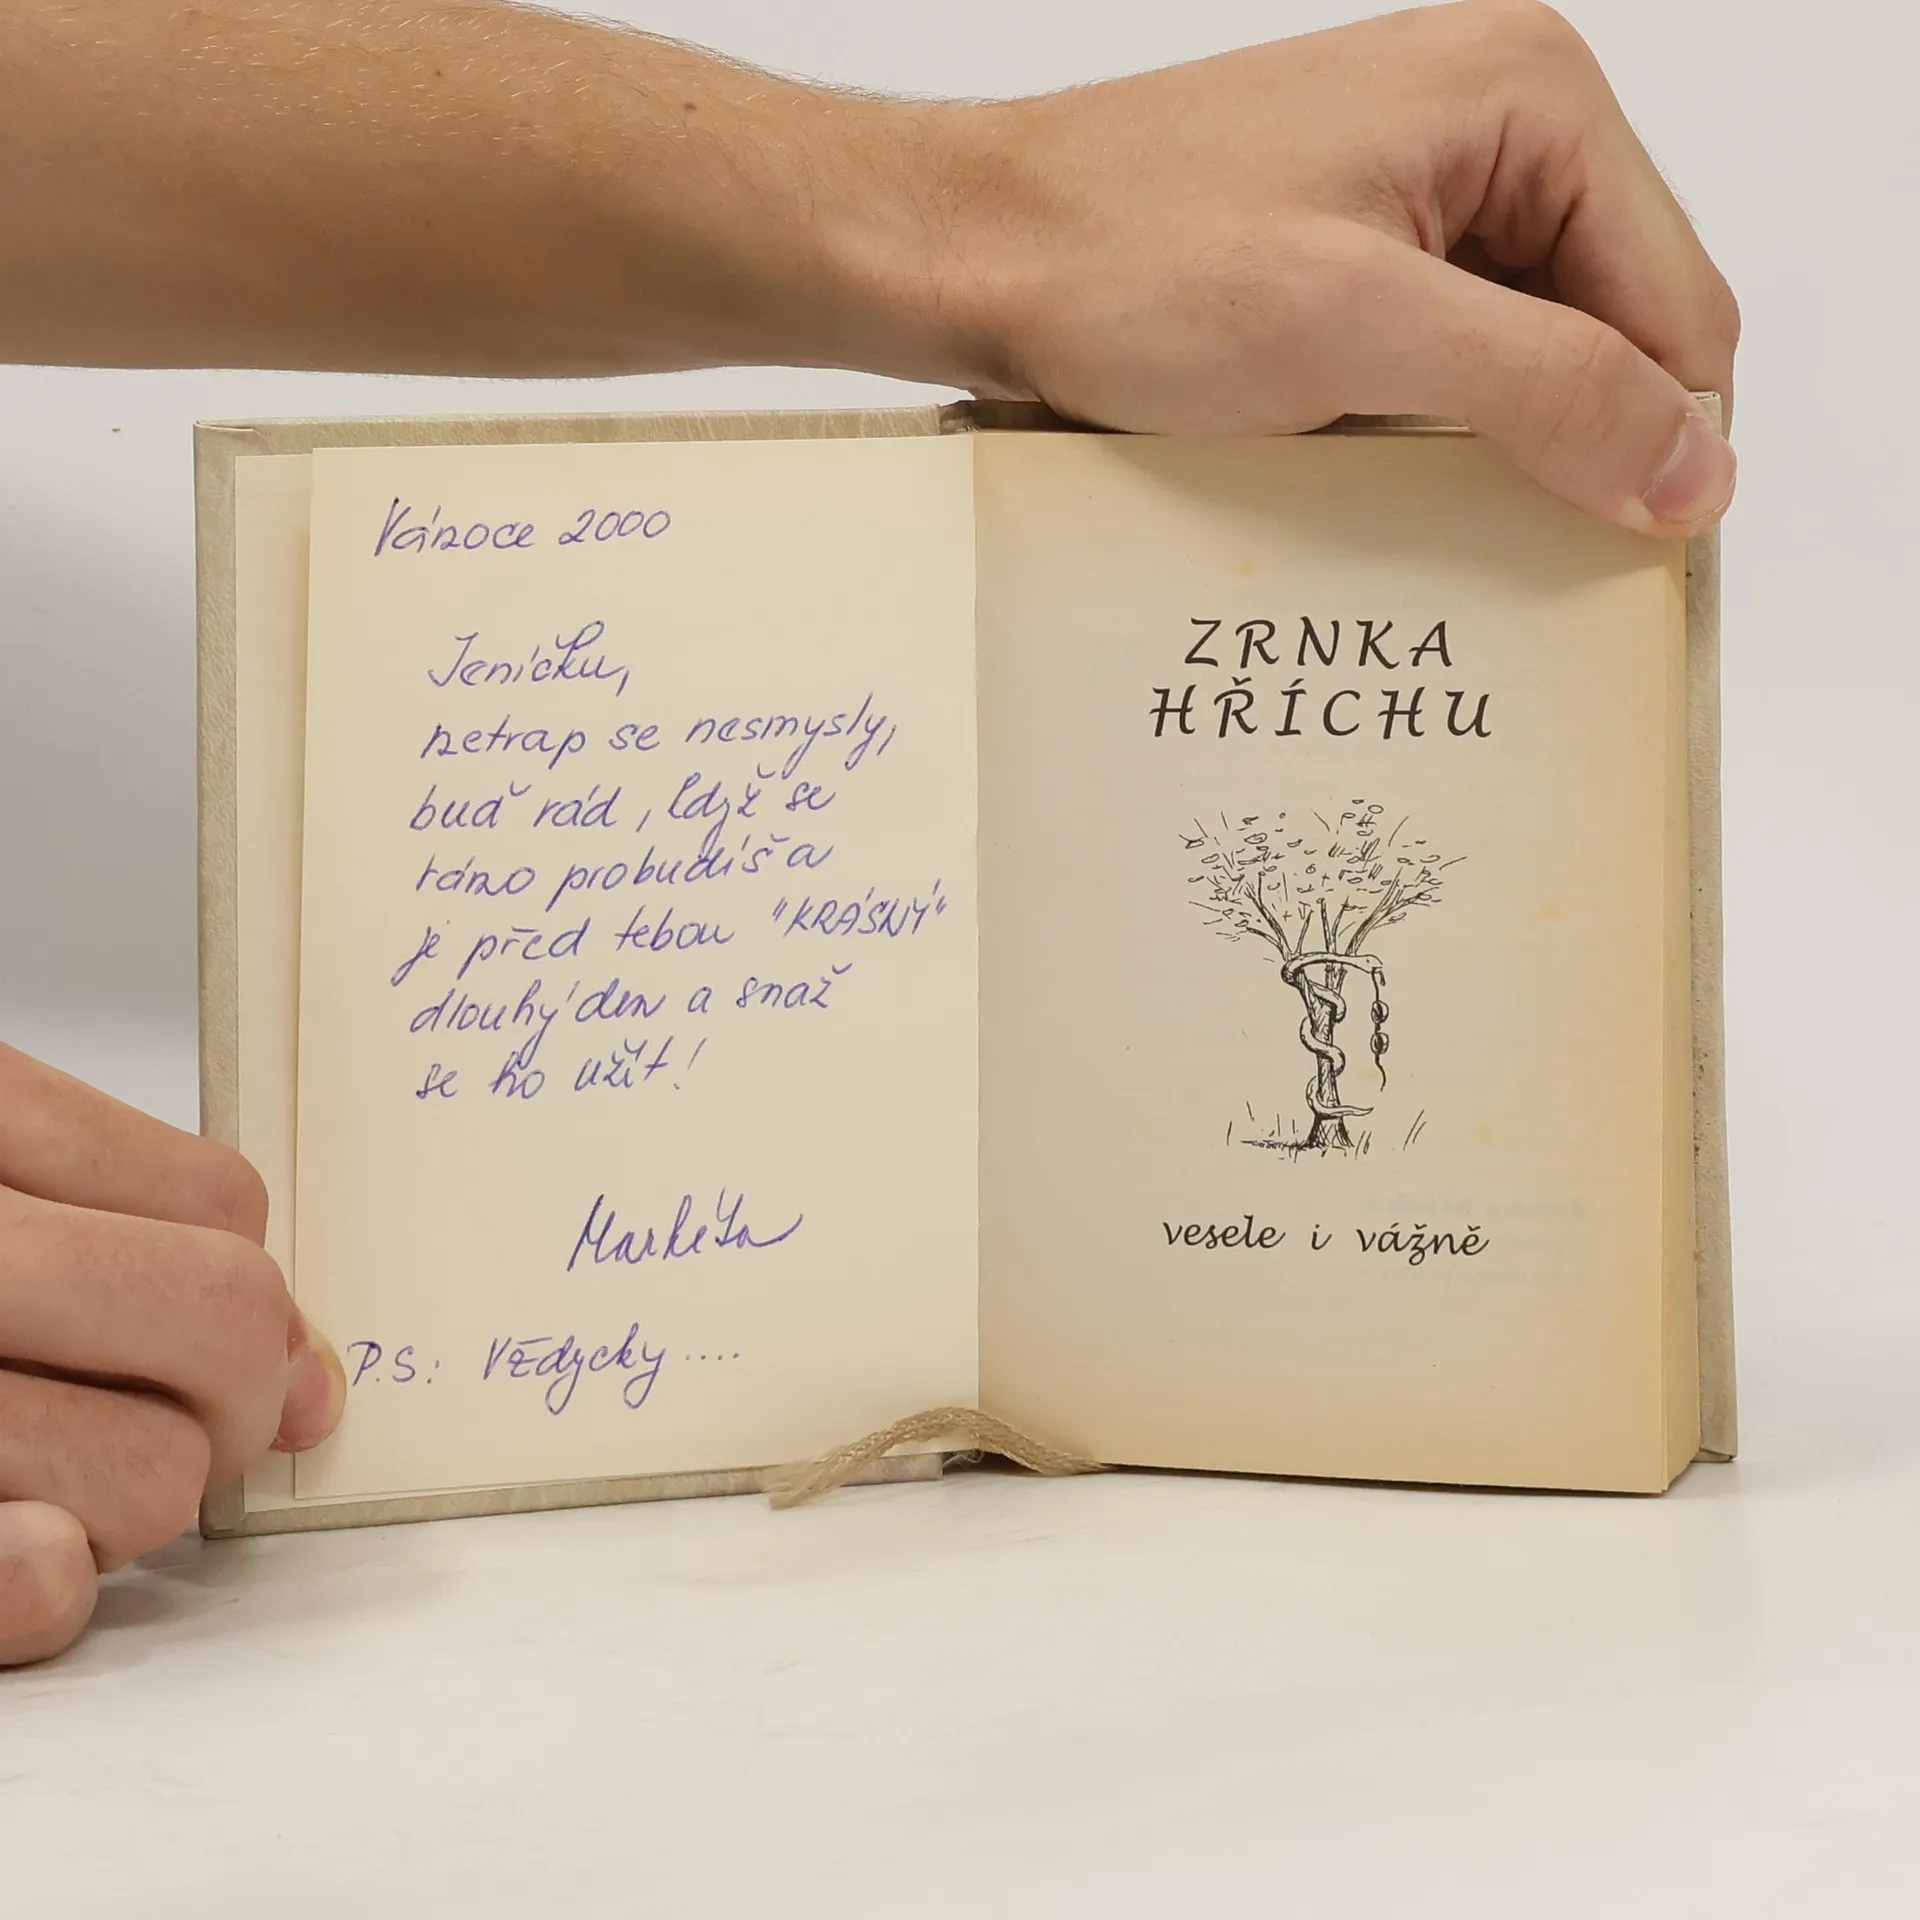 Vánoce 2000
Jeníčku,
netrap se nesmysly,
buď rád, když se
ráno probudíš a
je před tebou "KRÁSNÝ"
dlouhý den a snaž
se ho užít!
Markéta
P.S.: Vždycky ....
ZRNKA
HŘÍCHU
vesele i vážně